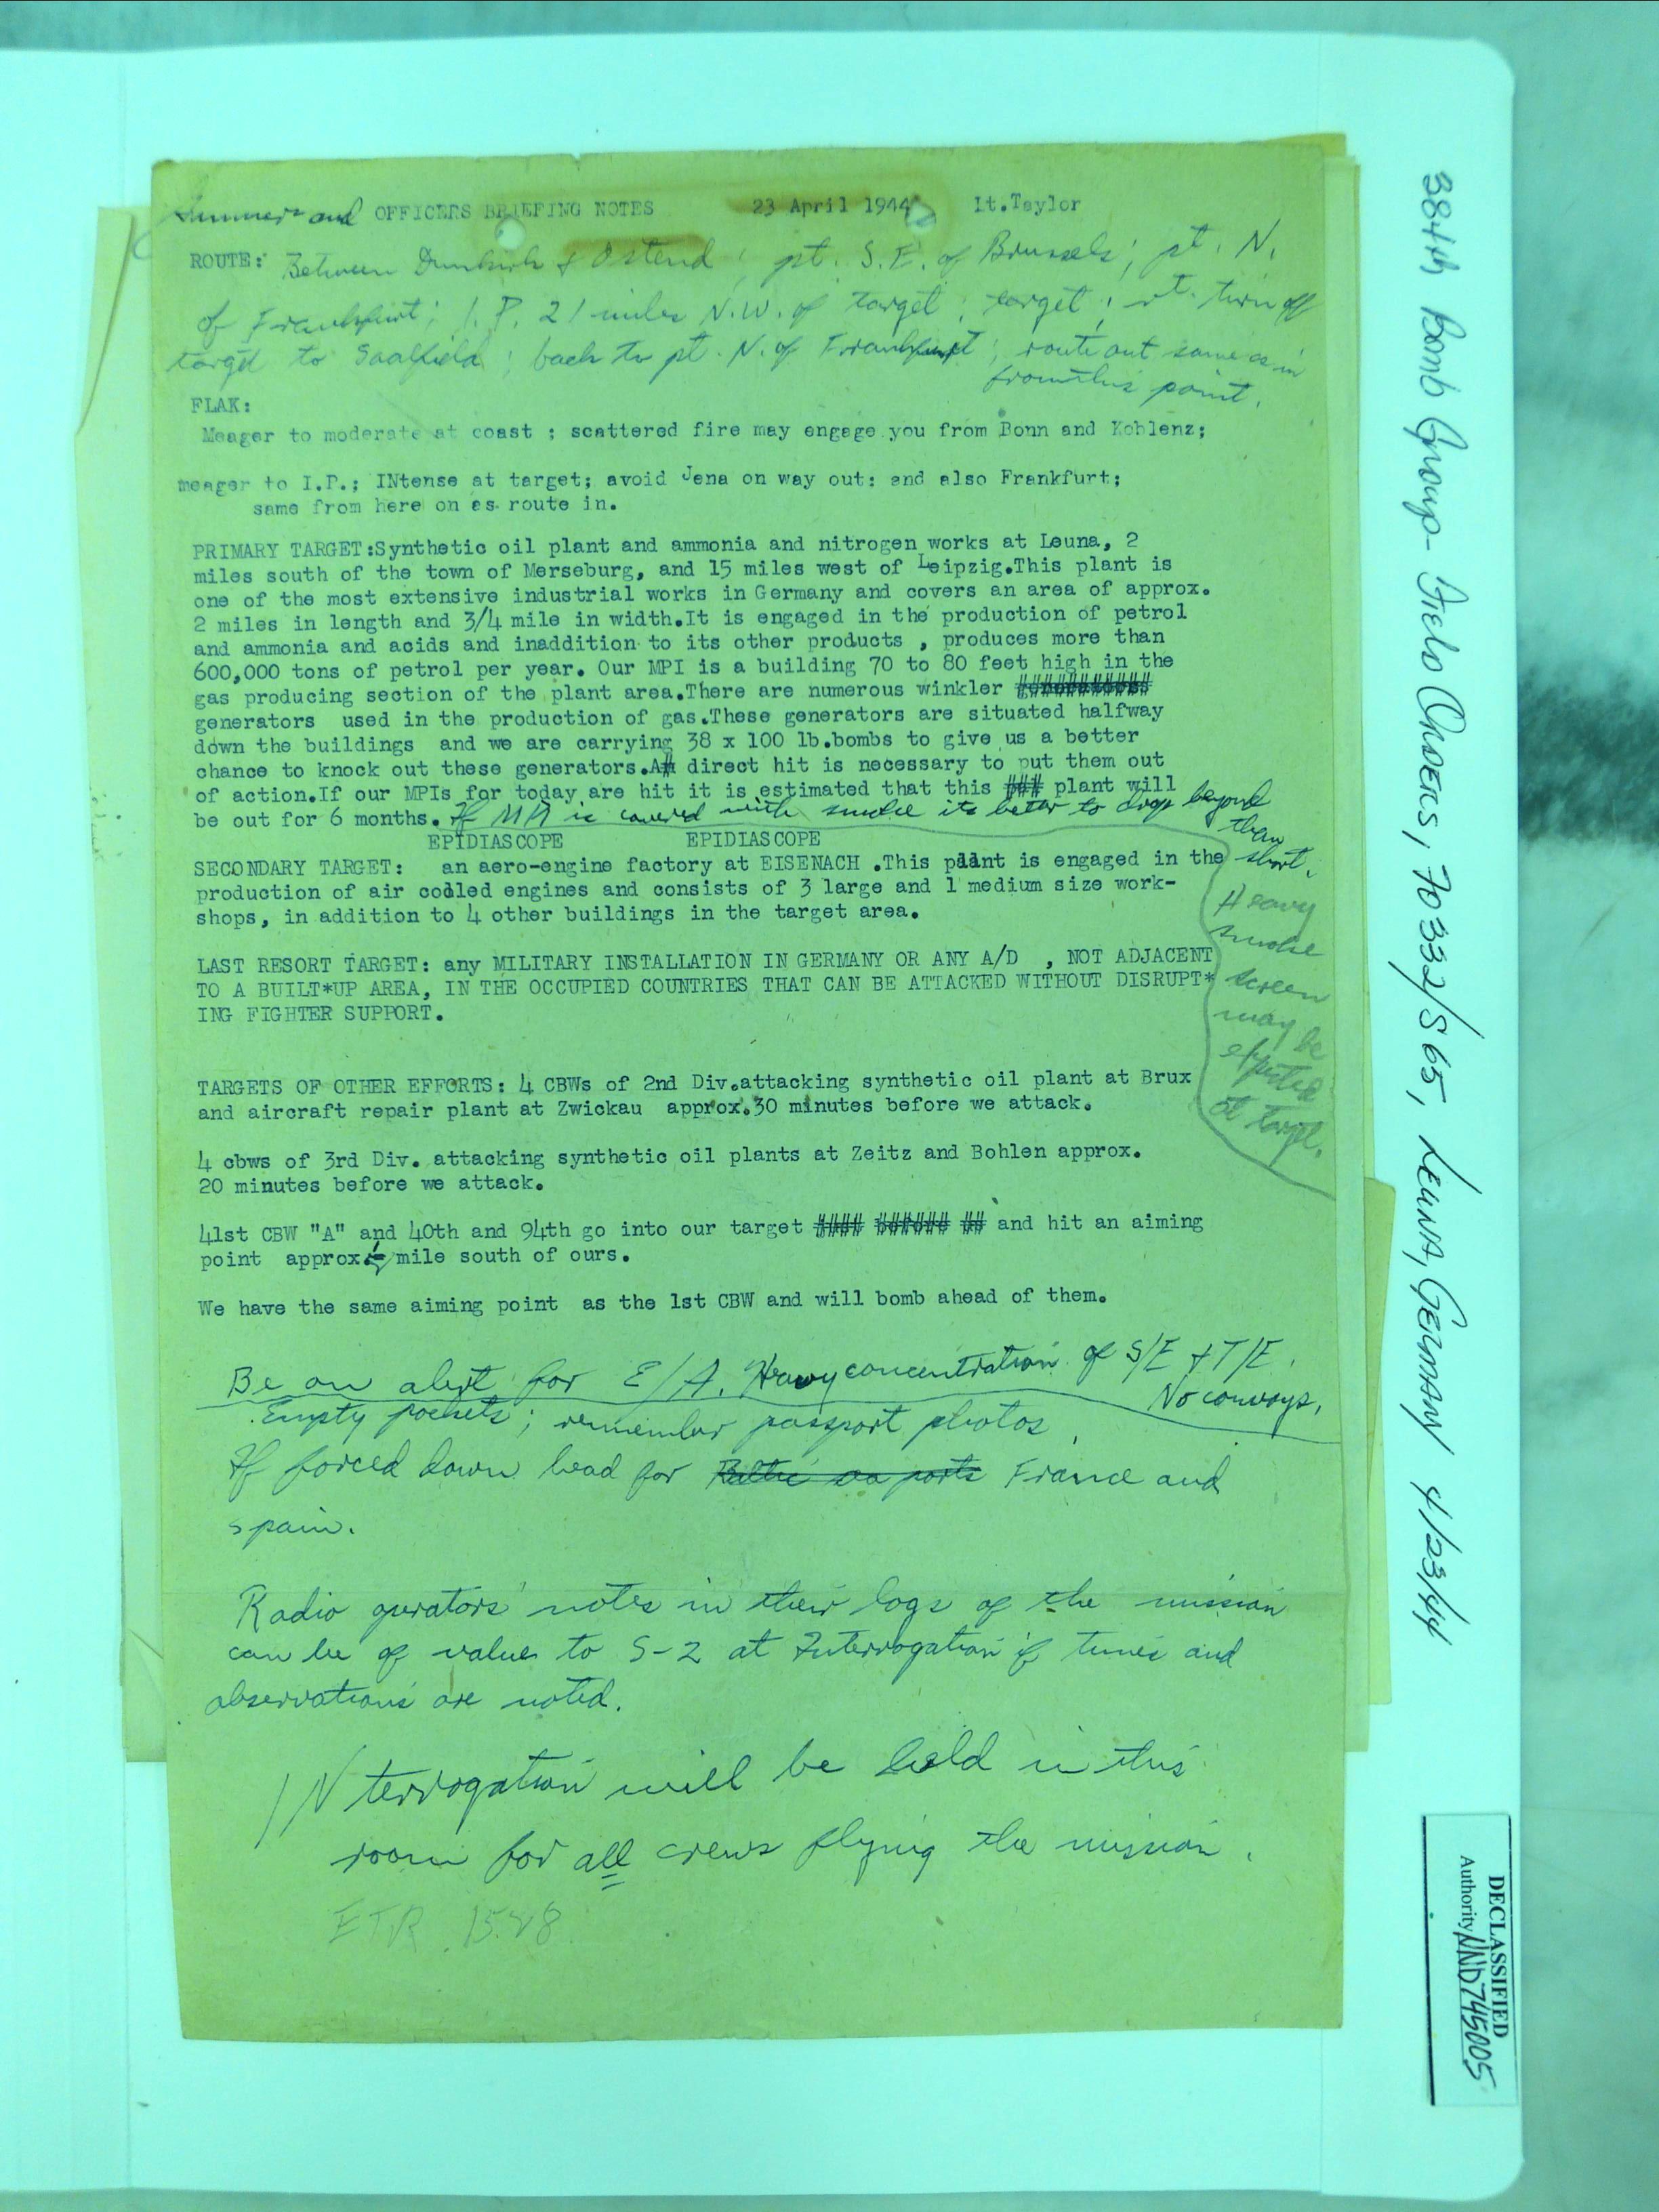 Gunners and OFFICERS BRIEFING NOTES 23 April 1944 Lt.Taylor
ROUTE: Between Dunkirk & Ostend ; pt. S.E. of Brussels; pt. N.
of Frankfurt; I.P. 21 miles N.W. of target; target; rt. turn off
target to Saalfield; back to pt. N. of Frankfurt; route out same as in
from this point.
FLAK:
Meager to moderate at coast ; scattered fire may engage you from Bonn and Koblenz;
meager to I.P.; INtense at target; avoid Jena on way out: and also Frankfurt;
same from here on as route in.
PRIMARY TARGET:Synthetic oil plant and ammonia and nitrogen works at Leuna, 2
miles south of the town of Merseburg, and 15 miles west of Leipzig.This plant is
one of the most extensive industrial works in Germany and covers an area of approx.
2 miles in length and 3/4 mile in width.It is engaged in the production of petrol
and ammonia and acids and inaddition to its other products , produces more than
600,000 tons of petrol per year. Our MPI is a building 70 to 80 feet high in the
gas producing section of the plant area.There are numerous winkler
generators used in the production of gas.These generators are situated halfway
down the buildings and we are carrying 38 x 100 lb.bombs to give us a better
chance to knock out these generators.A direct hit is necessary to put them out
of action.If our MPIs for today are hit it is estimated that this ### plant will
be out for 6 months. If is covered with smoke its better to drop beyond
than
short.
EPIDIASCOPE EPIDIASCOPE
SECONDARY TARGET: an aero-engine factory at EISENACH .This plant is engaged in the
production of air cooled engines and consists of 3 large and 1 medium size work-
shops, in addition to 4 other buildings in the target area.
Heavy
smoke
screen
may be
expected
at target.
LAST RESORT TARGET: any MILITARY INSTALLATION IN GERMANY OR ANY A/D , NOT ADJACENT
TO A BUILT*UP AREA, IN THE OCCUPIED COUNTRIES THAT CAN BE ATTACKED WITHOUT DISRUPT*
ING FIGHTER SUPPORT.
TARGETS OF OTHER EFFORTS: 4 CBWs of 2nd Div.attacking synthetic oil plant at Brux
and aircraft repair plant at Zwickau approx.30 minutes before we attack.
4 cbws of 3rd Div. attacking synthetic oil plants at Zeitz and Bohlen approx.
20 minutes before we attack.
41st CBW "A" and 40th and 94th go into our target #### before ## and hit an aiming
point approx. mile south of ours.
We have the same aiming point as the 1st CBW and will bomb ahead of them.
Be on alert for E/A. Heavy concentration of S/E & T/E.
No convoys.
Empty pockets; remember passport photos.
If forced down head for Baltic sea ports France and
spain.
Radio operators' notes in their logs of the mission
can be of value to S-2 at Interrogation if times and
observations are noted.
INterrogation will be held in this
room for all crews flying the mission.
ETR 1528
384th Bomb Group- Field Orders, FO 332/S 65, LEUNA, GERMANY 4/23/44
DECLASSIFIED
Authority NND745005